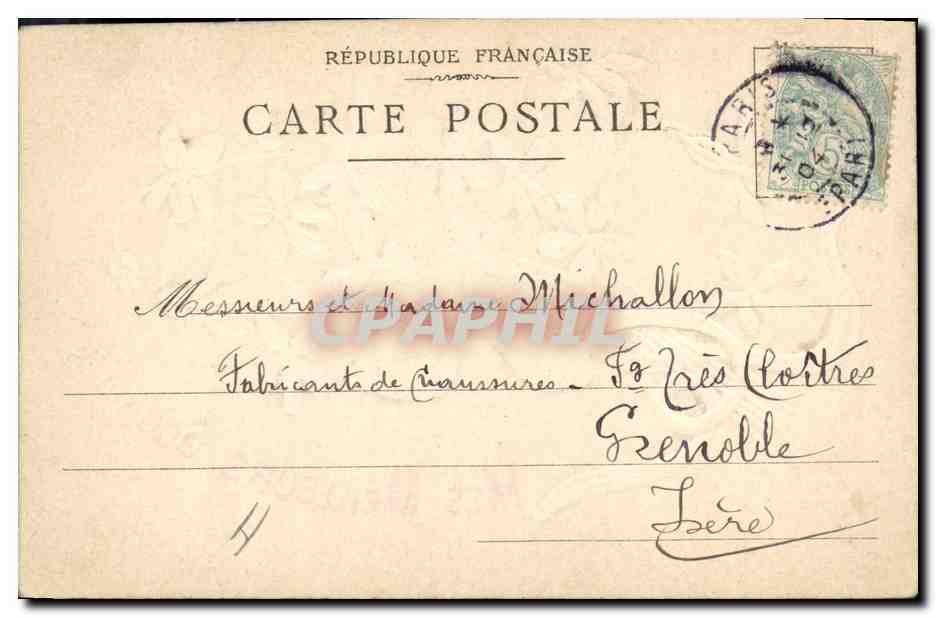 RÉPUBLIQUE FRANÇAISE
CARTE POSTALE
PARIS
PARIS
31
12
04
5
Messieurs et Madame Michallon
CPAPHIL
Fabricants de Chaussures - Fg Très Cloîtres
Grenoble
Isère
H